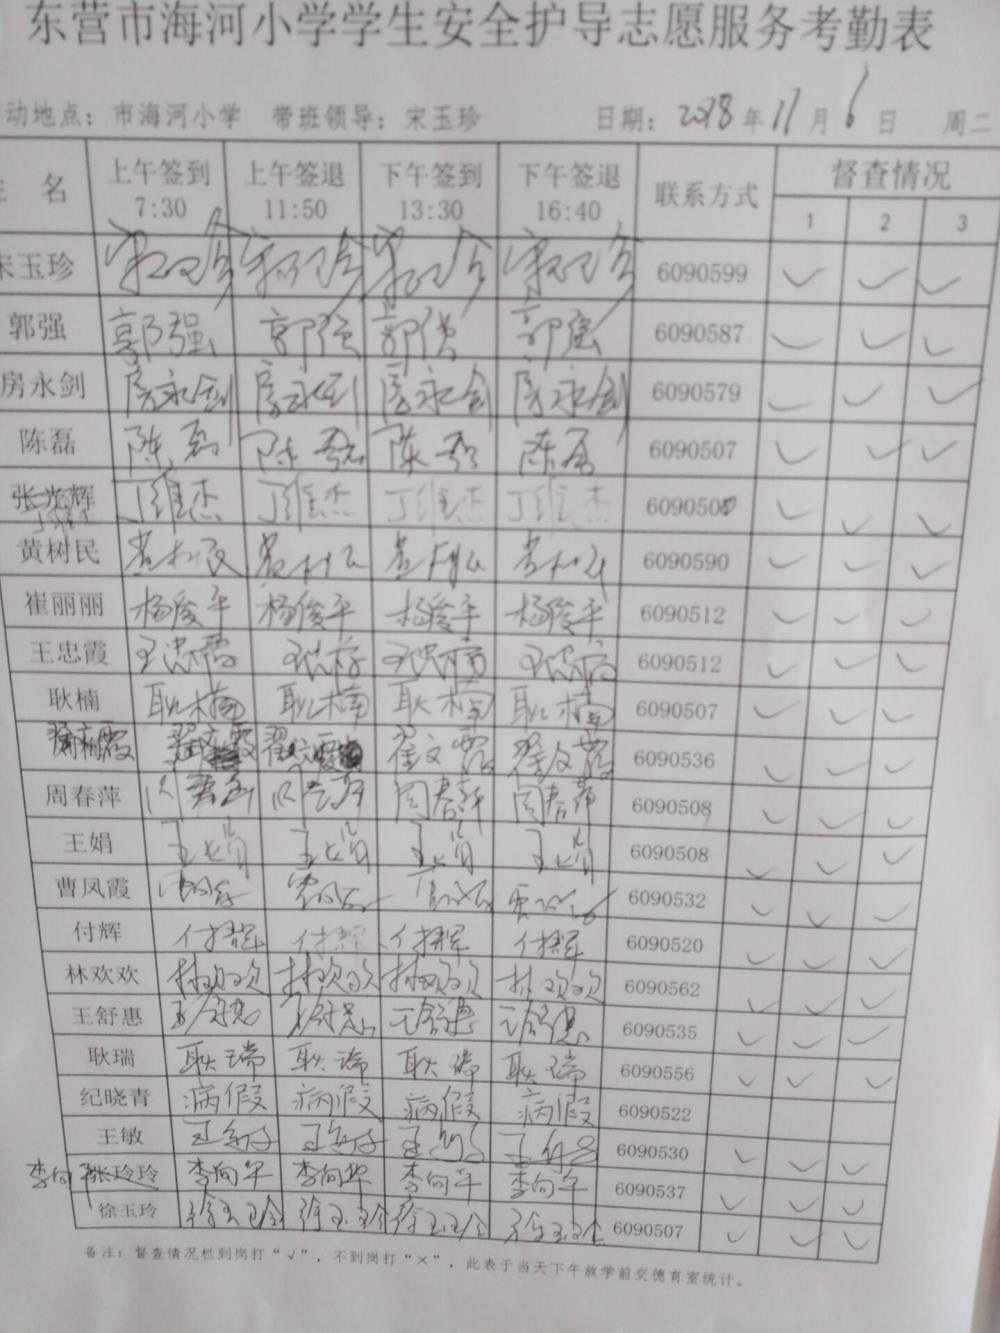 东营市海河小学学生安全护导志愿服务考勤表
动地点：市海河小学 带班领导：宋玉珍 日期：2018年11月6日 周二
名 上午签到 7:30 上午签退 11:50 下午签到 13:30 下午签退 16:40 联系方式 督查情况 1 2 3
宋玉珍 宋玉珍 宋玉珍 宋玉珍 宋玉珍 6090599 ✓ ✓ ✓
郭强 郭强 郭强 郭强 郭强 6090587 ✓ ✓ ✓
房永剑 房永剑 房永剑 房永剑 房永剑 6090579 ✓ ✓ ✓
陈磊 陈磊 陈磊 陈磊 陈磊 6090507 ✓ ✓ ✓
张光辉 丁维杰 丁维杰 丁维杰 丁维杰 丁维杰 609050 ✓ ✓ ✓
黄树民 黄树民 黄树民 黄树民 黄树民 6090590 ✓ ✓ ✓
崔丽丽 杨俊平 杨俊平 杨俊平 杨俊平 6090512 ✓ ✓ ✓
王忠霞 王忠霞 王忠霞 王忠霞 王忠霞 6090512 ✓ ✓ ✓
耿楠 耿楠 耿楠 耿楠 耿楠 6090507 ✓ ✓ ✓
翟文霞 翟文霞 6090536 ✓ ✓ ✓
周春萍 周春萍 周春萍 周春萍 周春萍 6090508 ✓ ✓ ✓
王娟 王娟 王娟 王娟 王娟 6090508 ✓ ✓ ✓
曹凤霞 曹凤霞 曹凤霞 曹凤霞 曹凤霞 6090532 ✓ ✓ ✓
付辉 付辉 付辉 付辉 付辉 6090520 ✓ ✓ ✓
林欢欢 林欢欢 林欢欢 林欢欢 林欢欢 6090562 ✓ ✓ ✓
王舒惠 王舒惠 王舒惠 王舒惠 王舒惠 6090535 ✓ ✓ ✓
耿瑞 耿瑞 耿瑞 耿瑞 耿瑞 6090556 ✓ ✓ ✓
纪晓青 病假 病假 病假 病假 6090522
王敏 王敏 王敏 王敏 王敏 6090530 ✓ ✓ ✓
李向平 张玲玲 李向平 李向平 李向平 李向平 6090537 ✓ ✓ ✓
徐玉玲 徐玉玲 徐玉玲 徐玉玲 徐玉玲 6090507 ✓ ✓ ✓
备注：督查情况栏到岗打“√”，不到岗打“×”，此表于当天下午放学前交德育室统计。